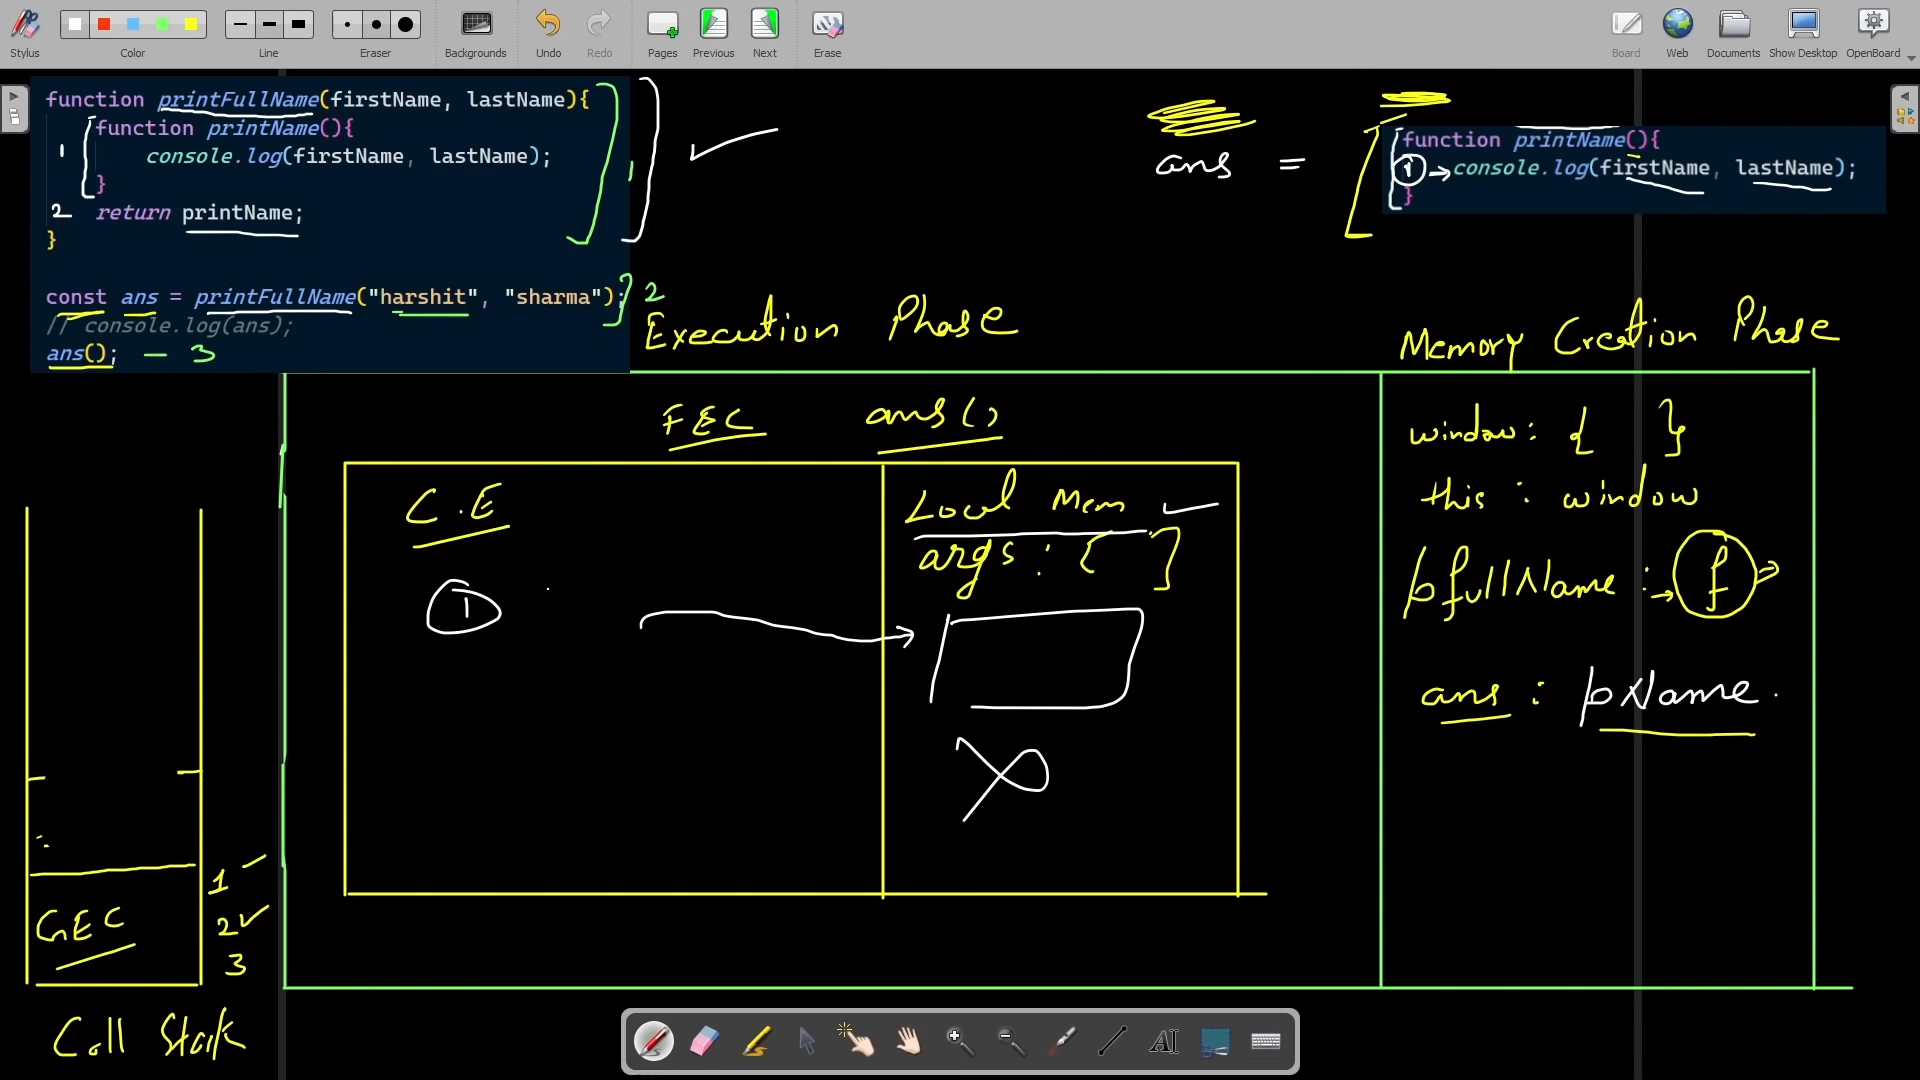 Stylus
Color
Line
Eraser
Backgrounds
Undo
Redo
Pages
Previous
Next
Erase
Board
Web
Documents
Show Desktop
OpenBoard
function printFullName(firstName, lastName){
1 function printName(){
console.log(firstName, lastName);
}
2 return printName;
}
1
const ans = printFullName("harshit", "sharma"); 2
// console.log(ans);
ans(); — 3
ans =
function printName(){
1 → console.log(firstName, lastName);
}
Execution Phase
Memory Creation Phase
FEC ans()
C.E
1
Local Mem
args : [ ]
window : { }
this : window
pfullName : → f
ans : pName
GEC
1
2
3
Call Stack
AI